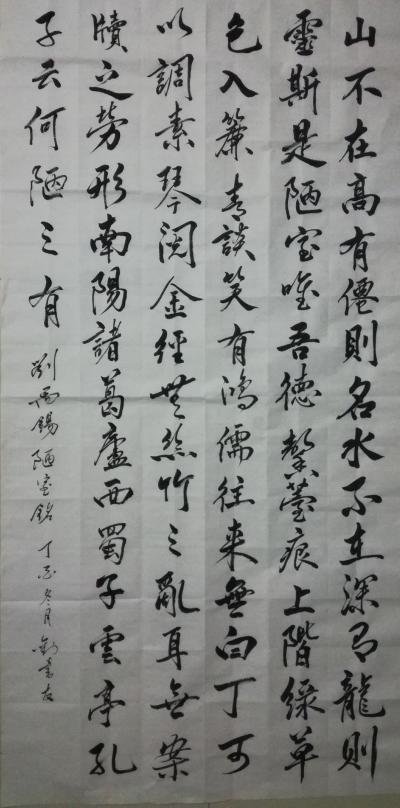 山不在高有僊則名水不在深有龍則
靈斯是陋室唯吾德馨薹痕上階綠草
色入簾青談笑有鴻儒往来無白丁可
以調素琴閱金經無絲竹之亂耳無案
牘之勞形南陽諸葛廬西蜀子雲亭孔
子云何陋之有
劉禹錫陋室銘 丁酉冬月